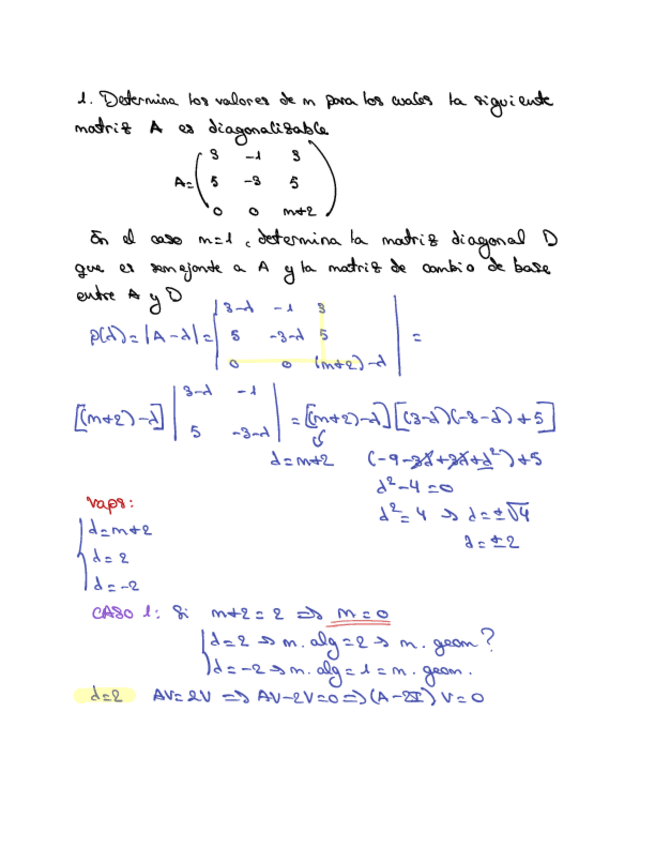 1. Determina los valores de m para los cuales la siguiente
matriz A es diagonalizable
A = ( 3 -1 3
5 -3 5
0 0 m+2 )
En el caso m=1, determina la matriz diagonal D
que es semejante a A y la matriz de cambio de base
entre A y D
p(λ) = |A - λ| = | 3-λ -1 3
5 -3-λ 5
0 0 (m+2)-λ | =
[(m+2)-λ] | 3-λ -1
5 -3-λ | = [(m+2)-λ] [(3-λ)(-3-λ)+5]
λ=m+2 (-9-3λ+3λ+λ²)+5
λ²-4=0
λ²=4 ⇒ λ=±√4
λ=±2
vaps:
λ=m+2
λ=2
λ=-2
CASO 1: Si m+2=2 ⇒ m=0
λ=2 ⇒ m.alg=2 ⇒ m.geom?
λ=-2 ⇒ m.alg=1=m.geom.
λ=2 AV=2V ⇒ AV-2V=0 ⇒ (A-2I)V=0